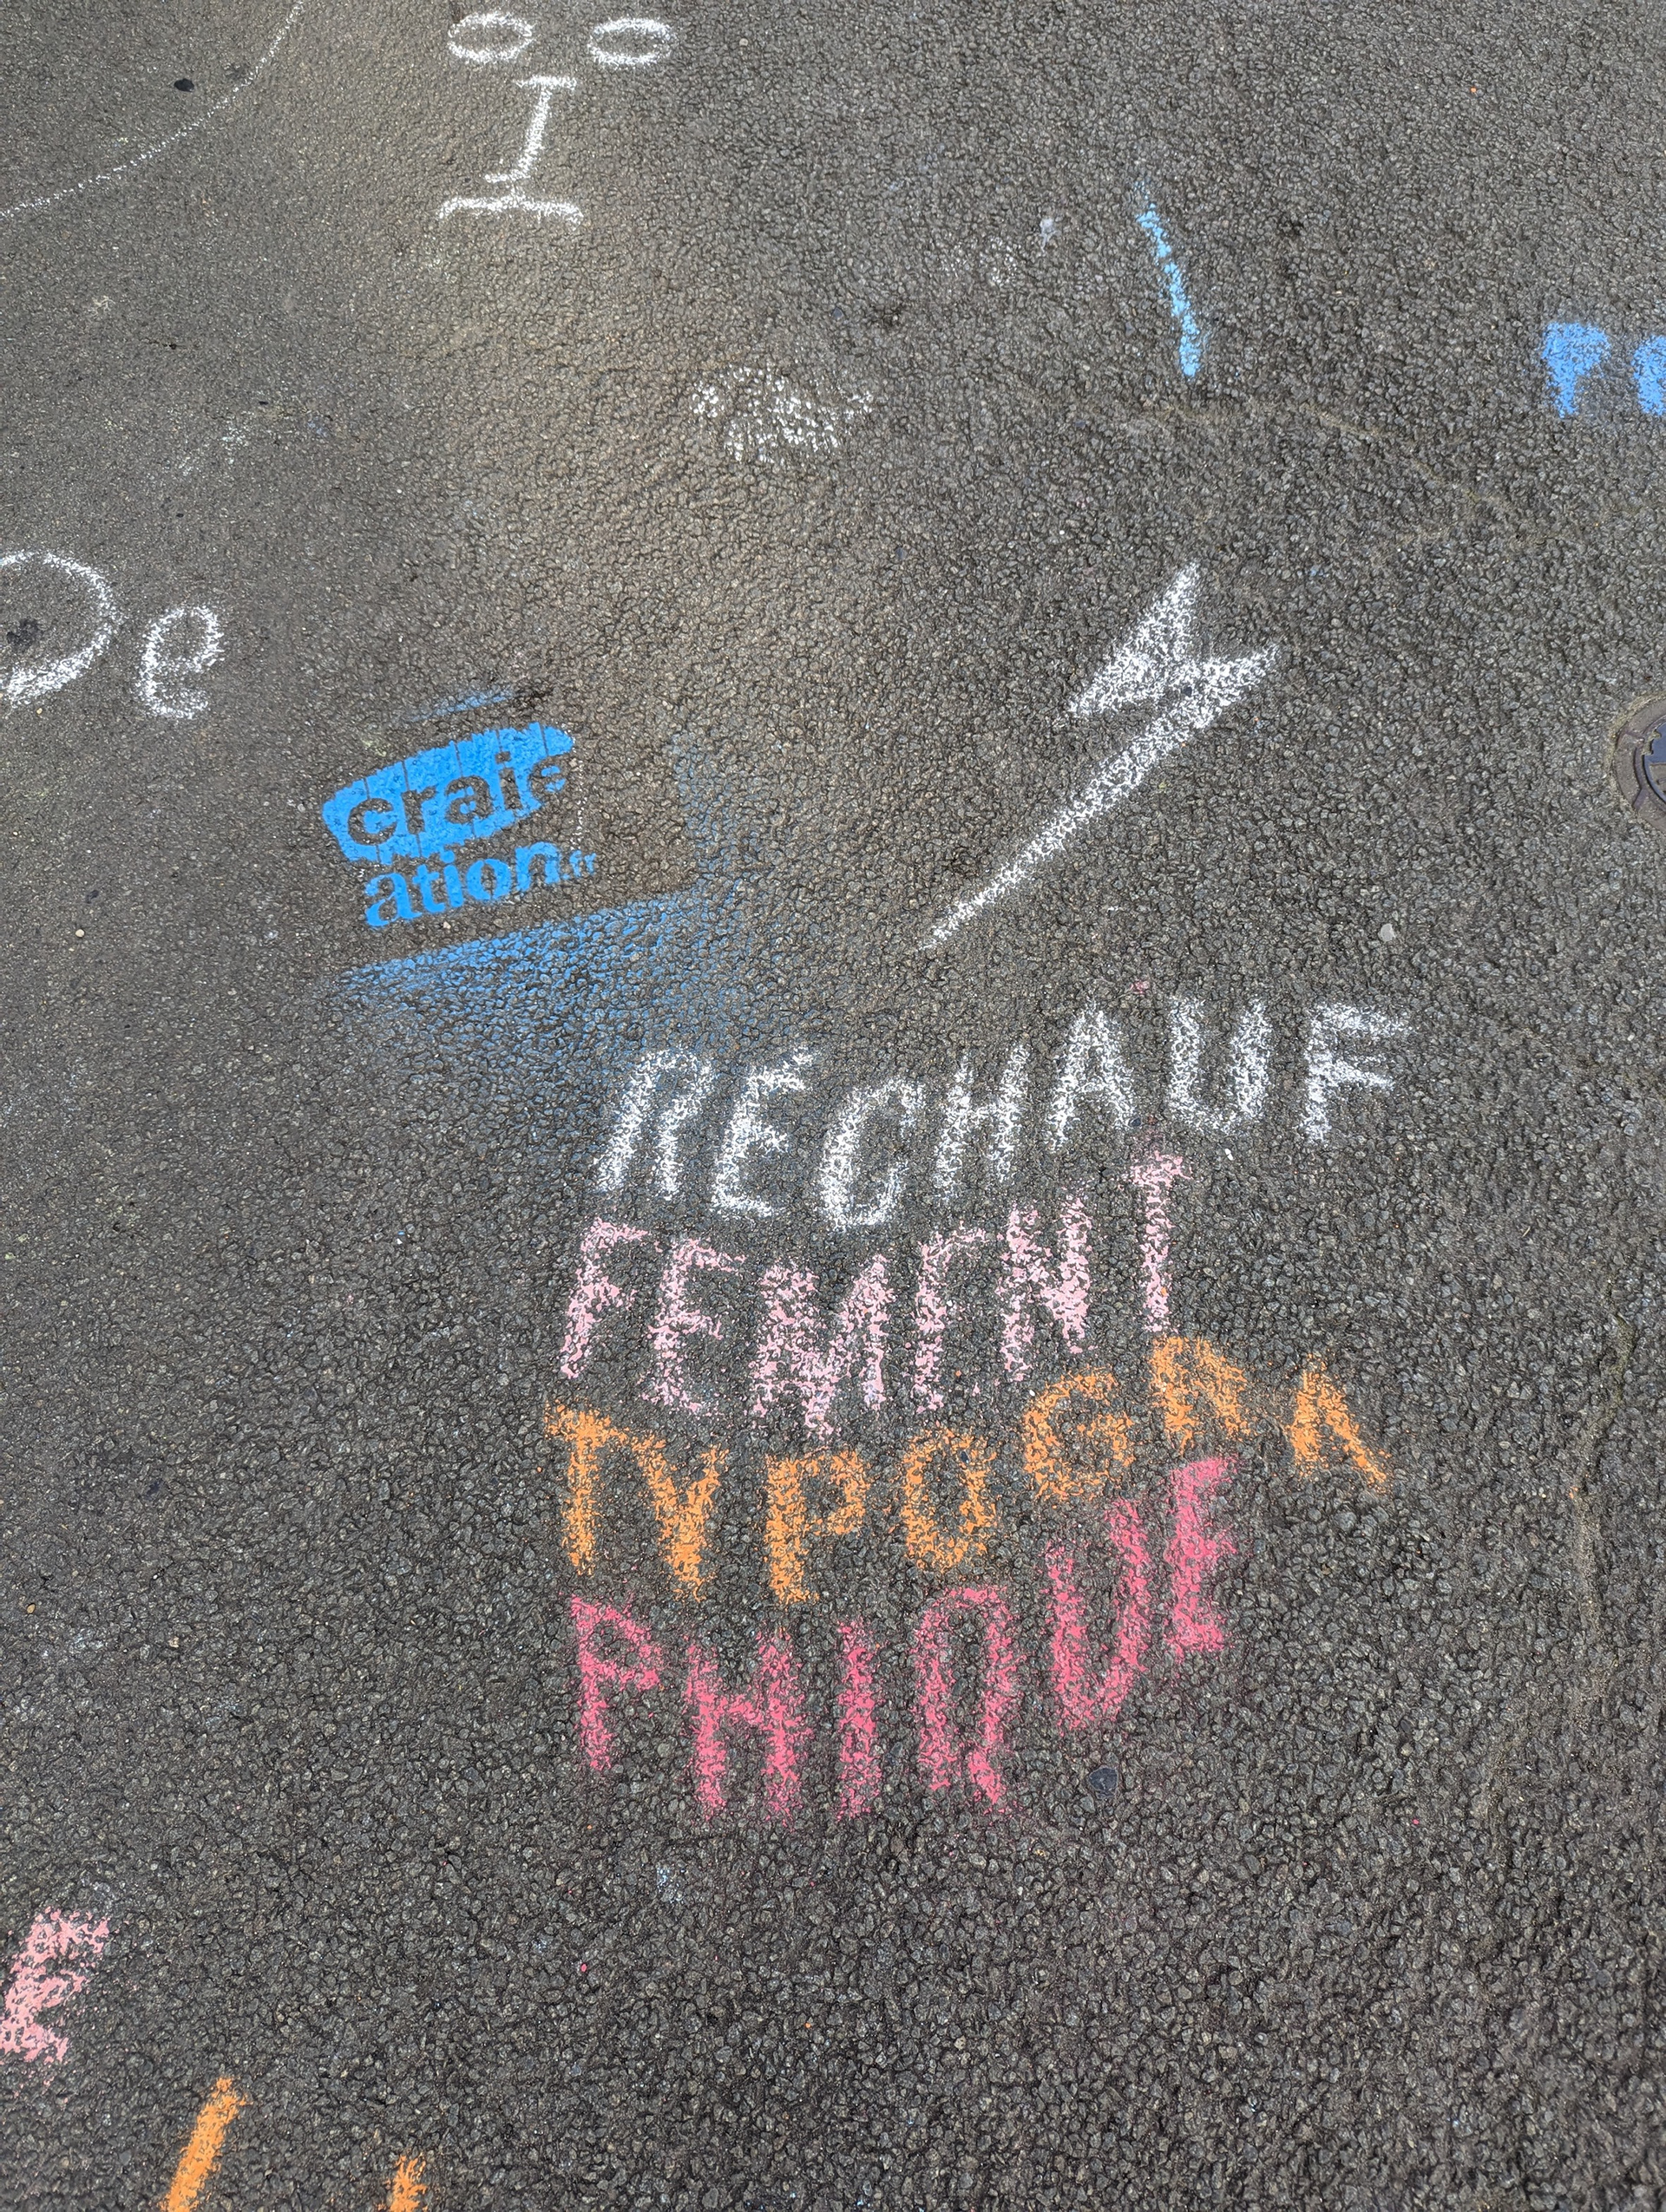 De
craie
ation.fr
RÉCHAUF
FEMENT
TYPOGRA
PHIQUE
E